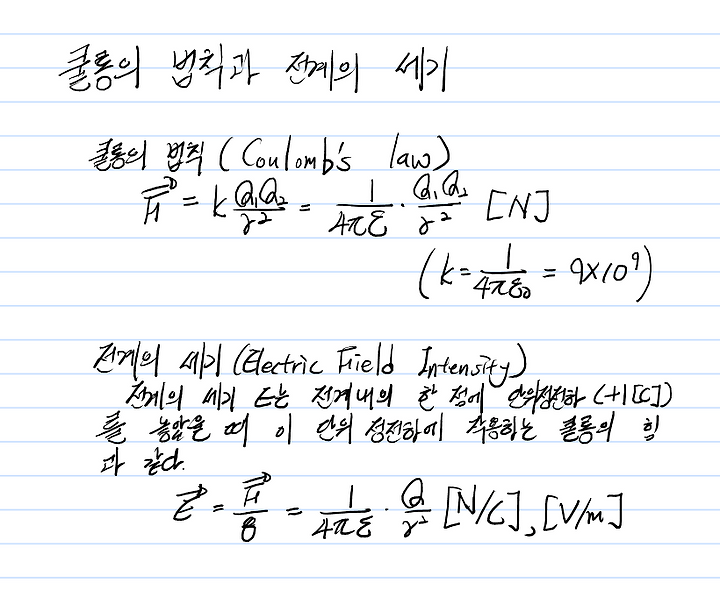 쿨롱의 법칙과 전계의 세기
쿨롱의 법칙 (Coulomb's law)
F⃗ = k Q₁Q₂/r² = 1/4πε · Q₁Q₂/r² [N]
(k = 1/4πε₀ = 9×10⁹)
전계의 세기 (Electric Field Intensity)
전계의 세기 E는 전계내의 한 점에 단위정전하 (+1[C])
를 놓았을 때 이 단위 정전하에 작용하는 쿨롱의 힘
과 같다.
E⃗ = F⃗/q = 1/4πε · Q/r² [N/C], [V/m]